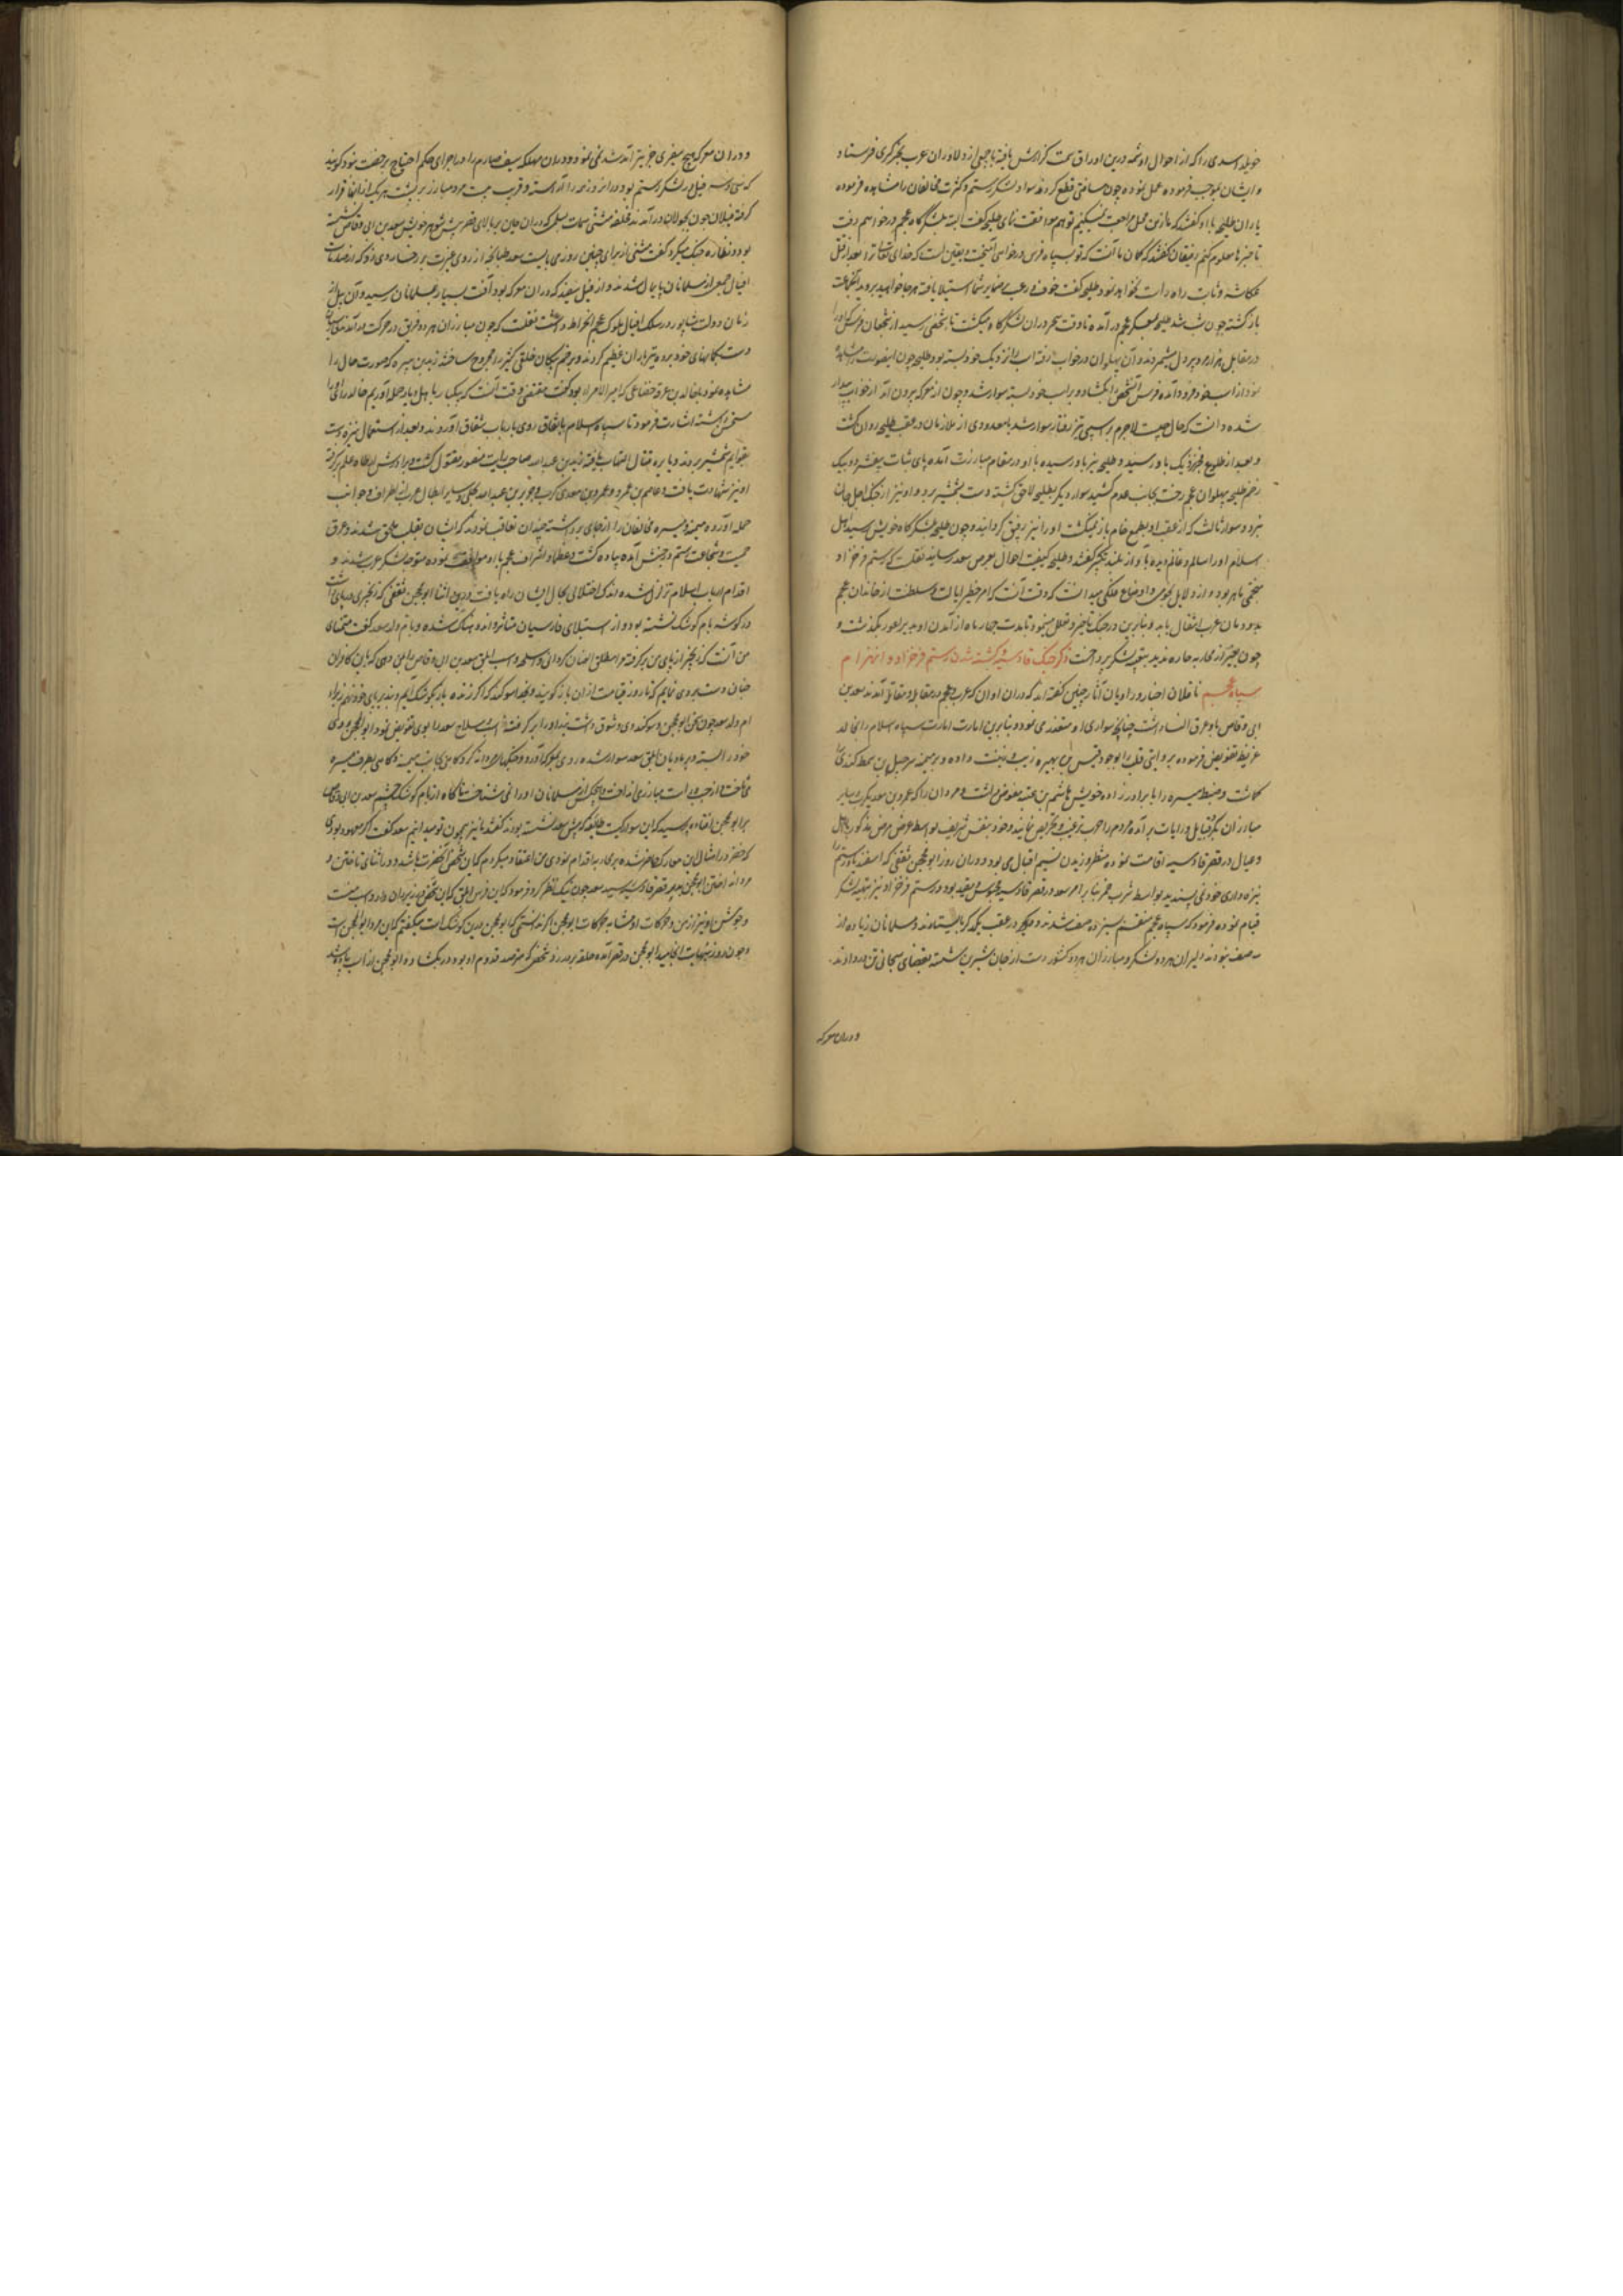 خویلد اسدی را که از احوال او شمه درین اوراق سمت گزارش یافته با جمعی از دلاوران عرب بخبرگیری فرستاد
و ایشان بموجب فرموده عمل نموده چون مسافتی قطع کردند سواد لشکر رستم و کثرت مخالفان را مشاهده فرموده
یاران طلیحه با او گفتند که ما ازین محل مراجعت میکنیم تو هم موافقت نمای طلیحه گفت البته بلشگرگاه عجم درخواهم رفت
تا خبرها معلوم کنم رفیقان گفتند که گمان ما آنست که تو بسپاه فرس درخواهی آمیخت و یقین است که خدای تعالی ترا بعد از قتل
عکاشه و ثابت راه راست نخواهد نمود طلیحه گفت خوف و رعب بر ضمایر شما استیلا یافته هرجا خواهید بروید آن جماعت
بازگشته چون شب شد طلیحه بمعسکر عجم درآمده تا وقت سحر دران لشکرگاه میگشت تا بشخصی رسید از شجعان فرس که او را
در مقابل هزار مرد پر دل میشمردند و آن پهلوان در خواب رفته اسب را نزدیک خود بسته بود طلیحه چون اینصورت مشاهده
نمود از اسب خود فرود آمده فرس آن شخص را بگشاد و بر اسب خود بسته سوار شد و چون از معرکه بیرون آمد از خواب بیدار
شده دانست که حال چیست لاجرم بر اسپی تیز رفتار سوار شد با معدودی از ملازمان در عقب طلیحه روان گشت
و بعد از طلوع فجر نزدیک باو رسید و طلیحه نیز باو رسیده با او در مقام مبارزت آمده پای ثبات بیفشرد و بیک
زخم طلیحه پهلوان عجم رخت بجانب عدم کشید سوار دیگر بطلیحه لاحق گشته دست بشمشیر برد و او نیز از چنگ اجل جان
نبرد و سوار ثالث که از عقب او بطمع خام باز میگشت او را نیز رفیق گردانید و چون طلیحه بلشکرگاه خویش رسید اهل
اسلام او را سالم و غانم دیده بآواز بلند تکبیر گفتند و طلیحه کیفیت احوال بعرض سعد رسانید نقلست که رستم فرخزاد
منجمی ماهر بود و از دلایل نجومی و اوضاع فلکی میدانست که وقت آنست که امر خطیر ایالت و سلطنت از خاندان عجم
بدودمان عرب انتقال یابد و بنابرین در جنگ تاخیر و تعلل مینمود تا مدت چهار ماه از آمدن او بدیر اعور بگذشت و
چون بغیر از محاربه چاره ندید بتعبیه لشکر پرداخت ذکر جنگ قادسیه و کشته شدن رستم فرخزاد و انهزام
سپاه عجم ناقلان اخبار و راویان آثار چنین گفته‌اند که دران اوان که عرب و عجم در مقابل و مقاتل آمدند سعد بن
ابی وقاص باو عرق النسا داشت چنانچه سواری او متعذر می نمود و بنابرین امارت سپاه اسلام را بخالد
عرفطه تفویض فرموده بروایتی قلب را بوجود قیس بن هبیره زیب و زینت داده و بر میمنه شرحبیل بن سمط کندی
گماشت و ضبط میسره را بابرادرزاده خویش هاشم بن عتبه مفوض داشت و مردان را که عمرو بن معدیکرب و سایر
مبارزان بگرد قبایل و رایات برآمده مردم را بحرب ترغیب و تحریص نمایند و خود بنفس شریف بواسطه عرض مرض مذکور با اهل
و عیال در قصر قادسیه اقامت نموده منتظر وزیدن نسیم اقبال می بود و دران روز ابو محجن ثقفی که اسفندیار و رستم را
نیزه داری خود نمی پسندید بواسطه شرب خمر بنا بر امر سعد در قصر قادسیه محبوس و مقید بود و رستم فرخزاد نیز بتعبیه لشکر
قیام نموده فرمود که سپاه عجم منقسم بسیزده صف شدند و در عقب یکدیگر بایستادند و مسلمانان زیاده از
سه صف نبودند دلیران هر دو لشکر و مبارزان هر دو کشور دست از جان شیرین شسته بقضای سبحانی تن در دادند
و دران معرکه
و دران معرکه هیچ سفیری جز تیر آمد شد نمی نمود و دران مهلکه سیف صارم را در اجرای حکم احتیاج برخصت نبود گویند
که سی و سه فیل در لشکر رستم بود و دران روز همه را آراسته و قریب بیست مرد مبارز بر پشت هر یک از انها قرار
گرفته فیلان چون بجولان درآمدند مثنی بن سلمی که دران حین بر بالای قصر پیش شوهر خویش سعد بن ابی وقاص نشسته
بود و نظاره جنگ میکرد گفت مثنی از برای چنین روزی می بایست سعد طپانچه از روی غیرت بر رخسار وی زد که
افیال جمعی از مسلمانان پایمال شدند و از فیل سفید که دران معرکه بود آفت بسیار بمسلمانان رسید و آن پیل از
زمان دولت شاپور در سلک افیال ملوک عجم انخراط داشت نقلست که چون مبارزان هر دو فریق در حرکت درآمدند
دست بکمانهای خود برده تیرباران عظیم کردند و بزخم پیکان خلقی کثیر را مجروح ساختند زید بن هبیره که صورت حال را
مشاهده نمود با خالد بن عرفطه قضاعی که امیر الامراء بود گفت مقتضی وقت آنست که بیکبار حمله آوریم خالد
سخن شنیده اشارت فرمود تا سپاه اسلام باتفاق روی بارباب شقاق آوردند و بعد از استعمال نیزه دست
بقوایم شمشیر بردند و نایره قتال التهاب یافته زید بن عبد الله صاحب رایت منصور مقتول گشت و برادرش علم برگرفته
او نیز شهادت یافت و عاصم بن عمرو و عمرو بن معدی کرب و جریر بن عبد الله بجلی و سایر ابطال عرب از اطراف و جوانب
حمله آورده میمنه و میسره مخالفان را از جای برداشته چندان تعاقب نمودند که ایشان بقلب ملحق شدند و عرق
حمیت و شجاعت رستم در جنبش آمده پیاده گشت و عظما و اشراف عجم با او موافقت نموده متوجه لشکر عرب شدند و
اقدام ارباب اسلام تزلزل شده اندک اختلالی بحال ایشان راه یافت و درین اثنا ابو محجن ثقفی که زنجیری در پای داشت
در گوشه بام کوشک نشسته بود و از استیلای فارسیان متاثر و اندوهناک شده و بام ولد سعد گفت متمنای
من آنست که زنجیر از پای من برگرفته مرا مطلق العنان گردانی و سلاح و اسب ابلق سعد بن ابی وقاص را بمن دهی که باین کافران
چنان دست بردی نمایم که تا روز قیامت ازان باز گویند و بخدا سوگند که اگر زنده مانم بازگردم و بند بر پای خود نهم
ام ولد سعد چون سخن ابو محجن و سوگند وی وثوق داشت بند او را برگرفته اسب و سلاح سعد را بوی تفویض نمود و ابو محجن روی
خود را بسته و بر مادیان ابلق سعد سوار شده روی بمعرکه آورد و جنگهای مردانه کرد گاهی بجانب میمنه و گاهی بطرف میسره
می تاخت و از چپ و راست مبارز می انداخت و هیچکس از مسلمانان او را نمی شناخت ناگاه از بام کوشک چشم سعد بن ابی وقاص
بر ابو محجن افتاد پرسید که این سوار کیست طایفه که پیش سعد نشسته بودند گفتند ما نیز همچون تو میدانیم سعد گفت اگر معهود بودی
که خضر در امثال این معارک حاضر شده بمحاربه اقدام نمودی من اعتقاد میکردم که این شخص آنحضرت باشد و در اثنای تاختن و
مردانه انداختن ابو محجن بپای قصر قادسیه رسید سعد چون نیک نظر کرد فرمود که این فرس ابلق که این شخص در زیر ران دارد اسب منست
و جوشن او نیز از من و حرکات او مشابه حرکات ابو محجن اگر نه دانستمی که ابو محجن درین کوشک است میگفتم که این مرد ابو محجن است
و چون روز بنهایت انجامید ابو محجن در قصر آمده حلقه بر در زد شخصی که مترصد قدوم او بود در بگشاد و ابو محجن از اسب پیاده شد